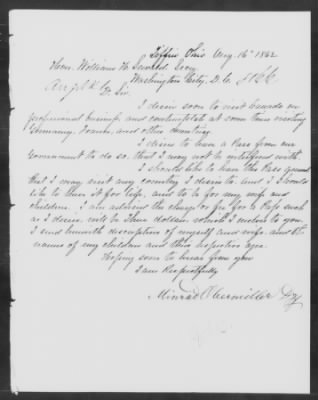 Tiffin Ohio Aug. 16th 1862
Hon. William H. Seward. Secy
Washington City. D.C.
D. Sir
I desire soon to visit Canada on
professional business and contemplate at some time visiting
Germany, France, and other countries.
I desire to have a Pass from our
Government to do so, that I may not be interfered with.
I should like to have the Pass general
that I may visit any country I desire to. and I should
like to have it for life, and to be for my wife and
children. I am advised the charge or fee for a Pass such
as I desire will be three dollars which I inclose to you.
I send beneath description of myself and wife and the
names of my children and their respective ages.
Hoping soon to hear from you
I am Respectfully
Obermiller